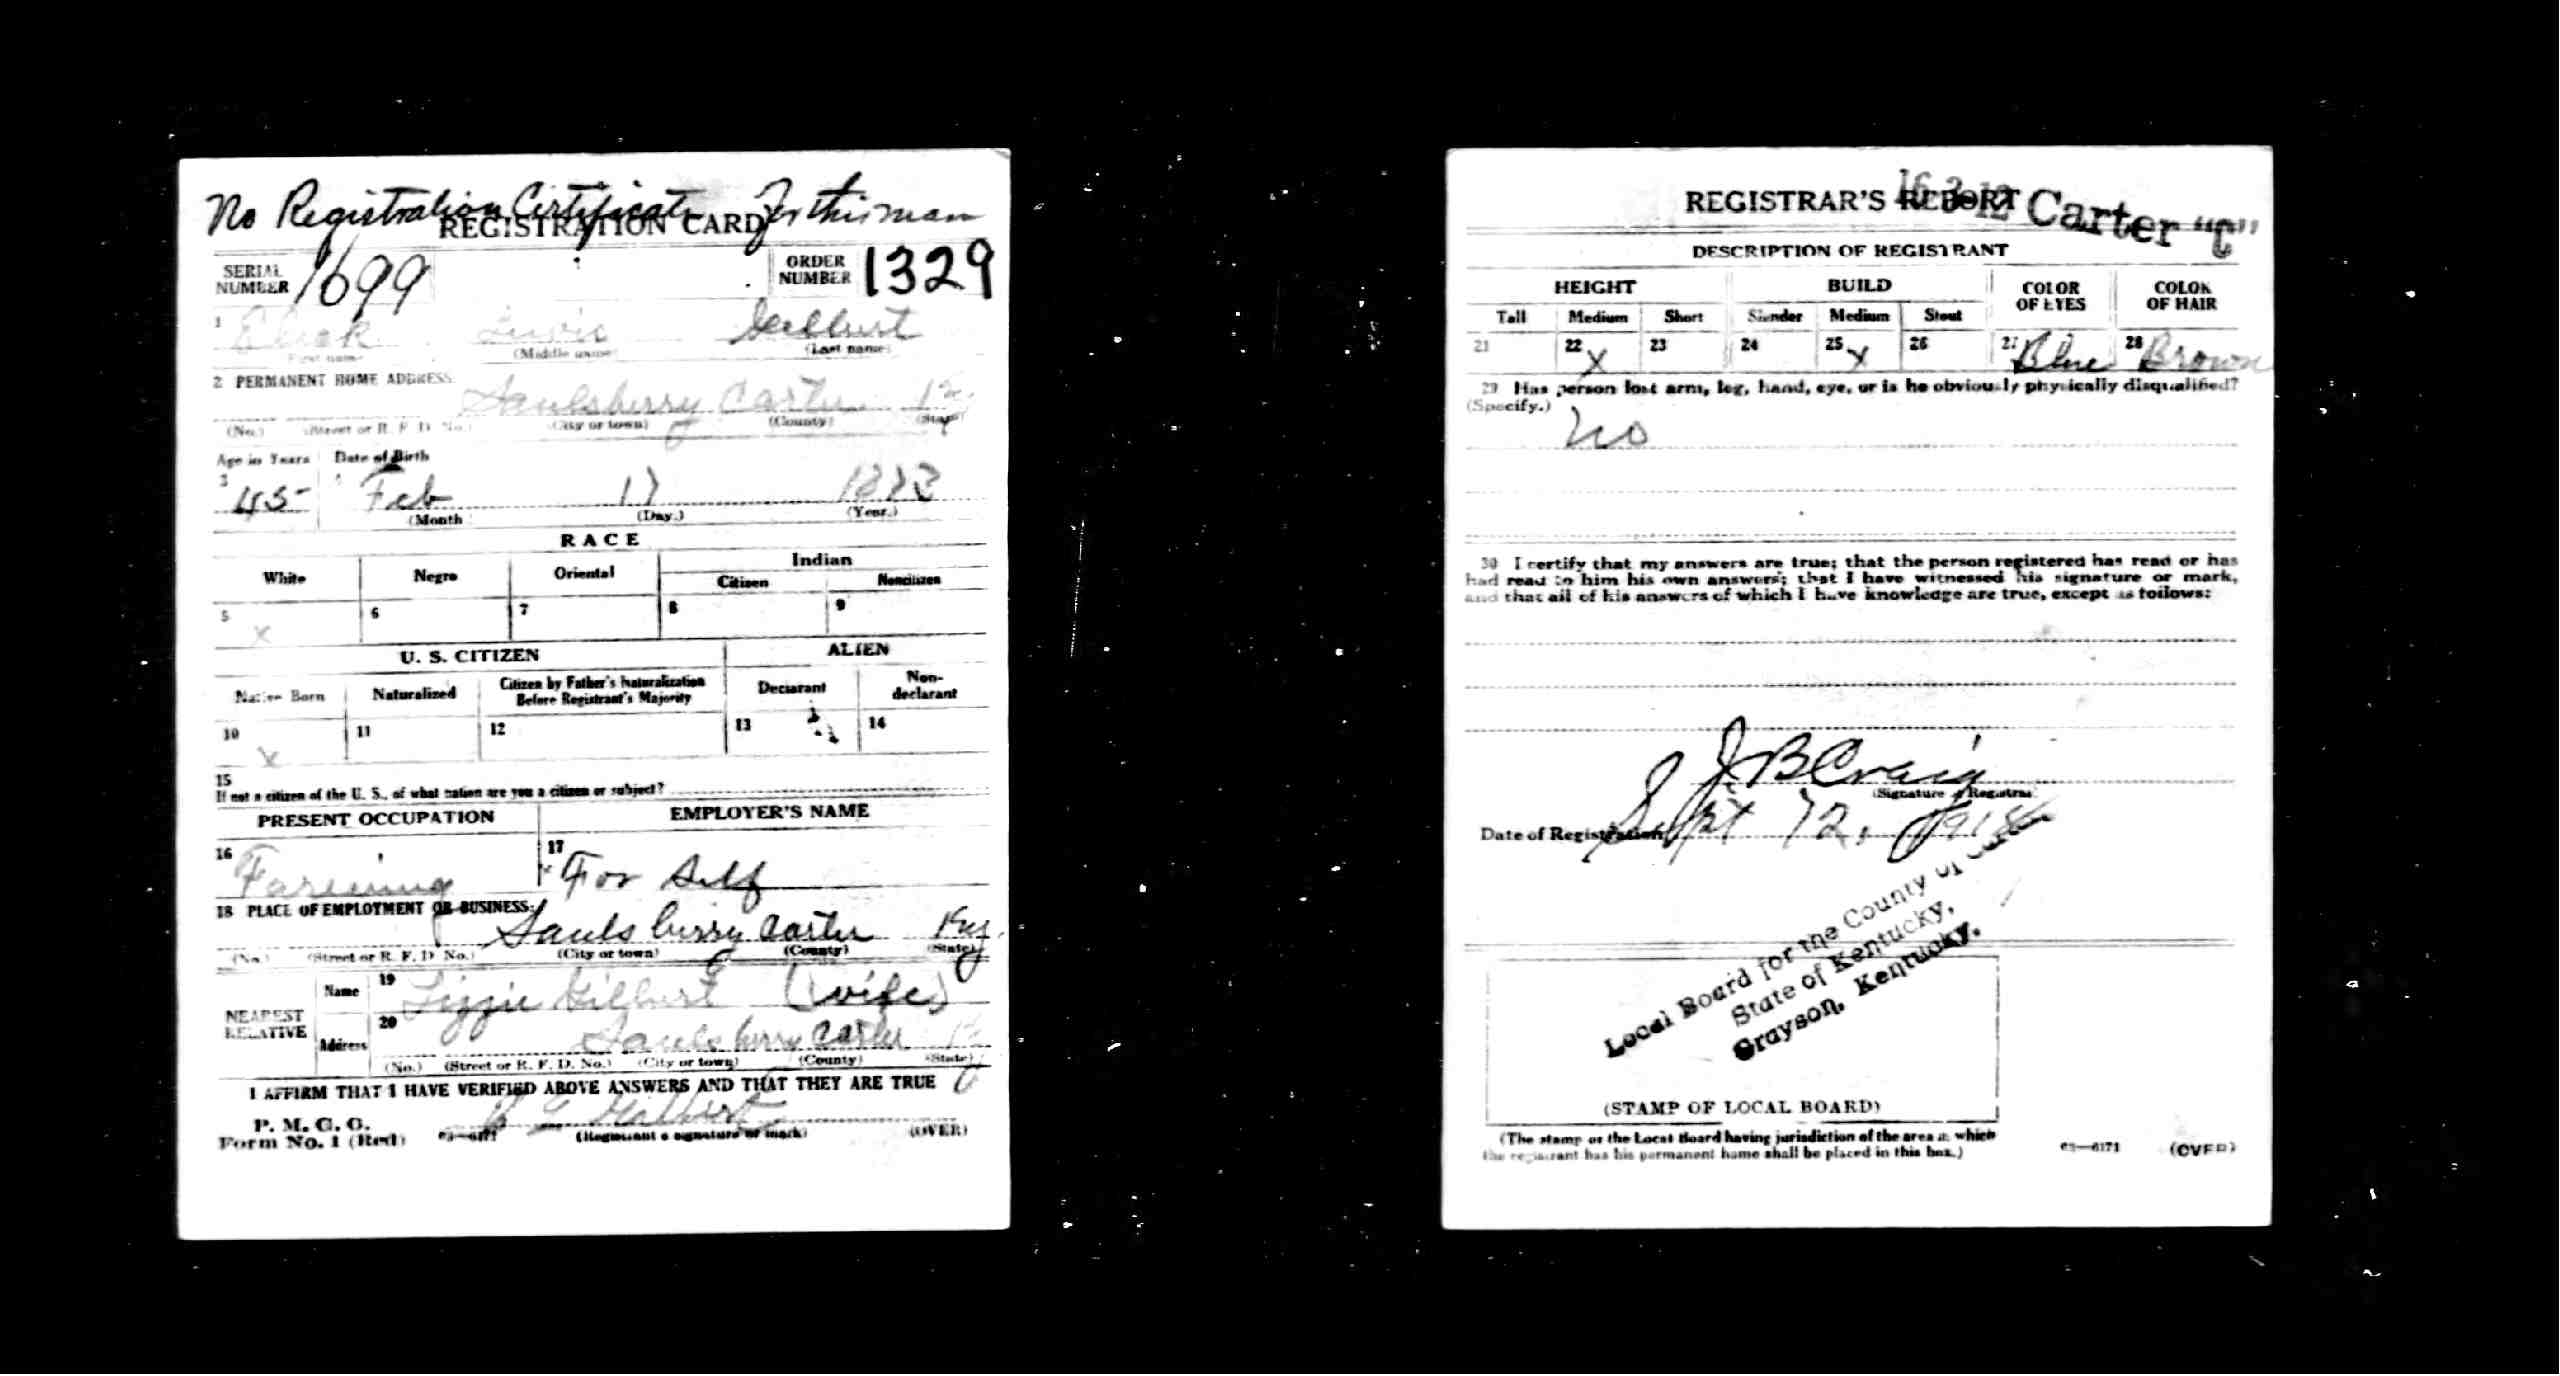 No Registration Certificate For this man
REGISTRATION CARD
SERIAL NUMBER 1699
ORDER NUMBER 1329
1 Lewis Gilbert
First name (Middle name) (Last name)
2 PERMANENT HOME ADDRESS
Saulsberry Carter Ky
(No.) (Street or R. F. D. No.) (City or town) (County) (State)
Age in Years Date of Birth
3 45 Feb 17 1873
(Month (Day.) (Year.)
RACE
White Negro Oriental Indian
Citizen Noncitizen
5 X 6 7 8 9
U. S. CITIZEN ALIEN
Native Born Naturalized Citizen by Father's Naturalization Before Registrant's Majority Declarant Non-declarant
10 X 11 12 13 14
15
If not a citizen of the U. S., of what nation are you a citizen or subject?
PRESENT OCCUPATION EMPLOYER'S NAME
16 Farming 17 For Self
18 PLACE OF EMPLOYMENT OR BUSINESS:
Saulsberry Carter Ky.
(No.) (Street or R. F. D. No.) (City or town) (County) (State)
NEAREST RELATIVE
Name 19 Lizzie Gilbert (wife)
Address 20 Saulsberry Carter Ky
(No.) (Street or R. F. D. No.) (City or town) (County) (State)
I AFFIRM THAT I HAVE VERIFIED ABOVE ANSWERS AND THAT THEY ARE TRUE
P. M. G. O.
Form No. 1 (Red) 03—6171 (Registrant's signature or mark) (OVER)
REGISTRAR'S REPORT 16-3-12 Carter "C"
DESCRIPTION OF REGISTRANT
HEIGHT BUILD COLOR OF EYES COLOR OF HAIR
Tall Medium Short Slender Medium Stout
21 22 X 23 24 25 X 26 27 Blue 28 Brown
29 Has person lost arm, leg, hand, eye, or is he obviously physically disqualified?
(Specify.)
No
30 I certify that my answers are true; that the person registered has read or has
had read to him his own answers; that I have witnessed his signature or mark,
and that all of his answers of which I have knowledge are true, except as follows:
J B Craig
(Signature of Registrar)
Date of Registration Sept 12, 1918
Local Board for the County of Carter
State of Kentucky,
Grayson, Kentucky.
(STAMP OF LOCAL BOARD)
(The stamp of the Local Board having jurisdiction of the area in which
the registrant has his permanent home shall be placed in this box.)
03—6171 (OVER)